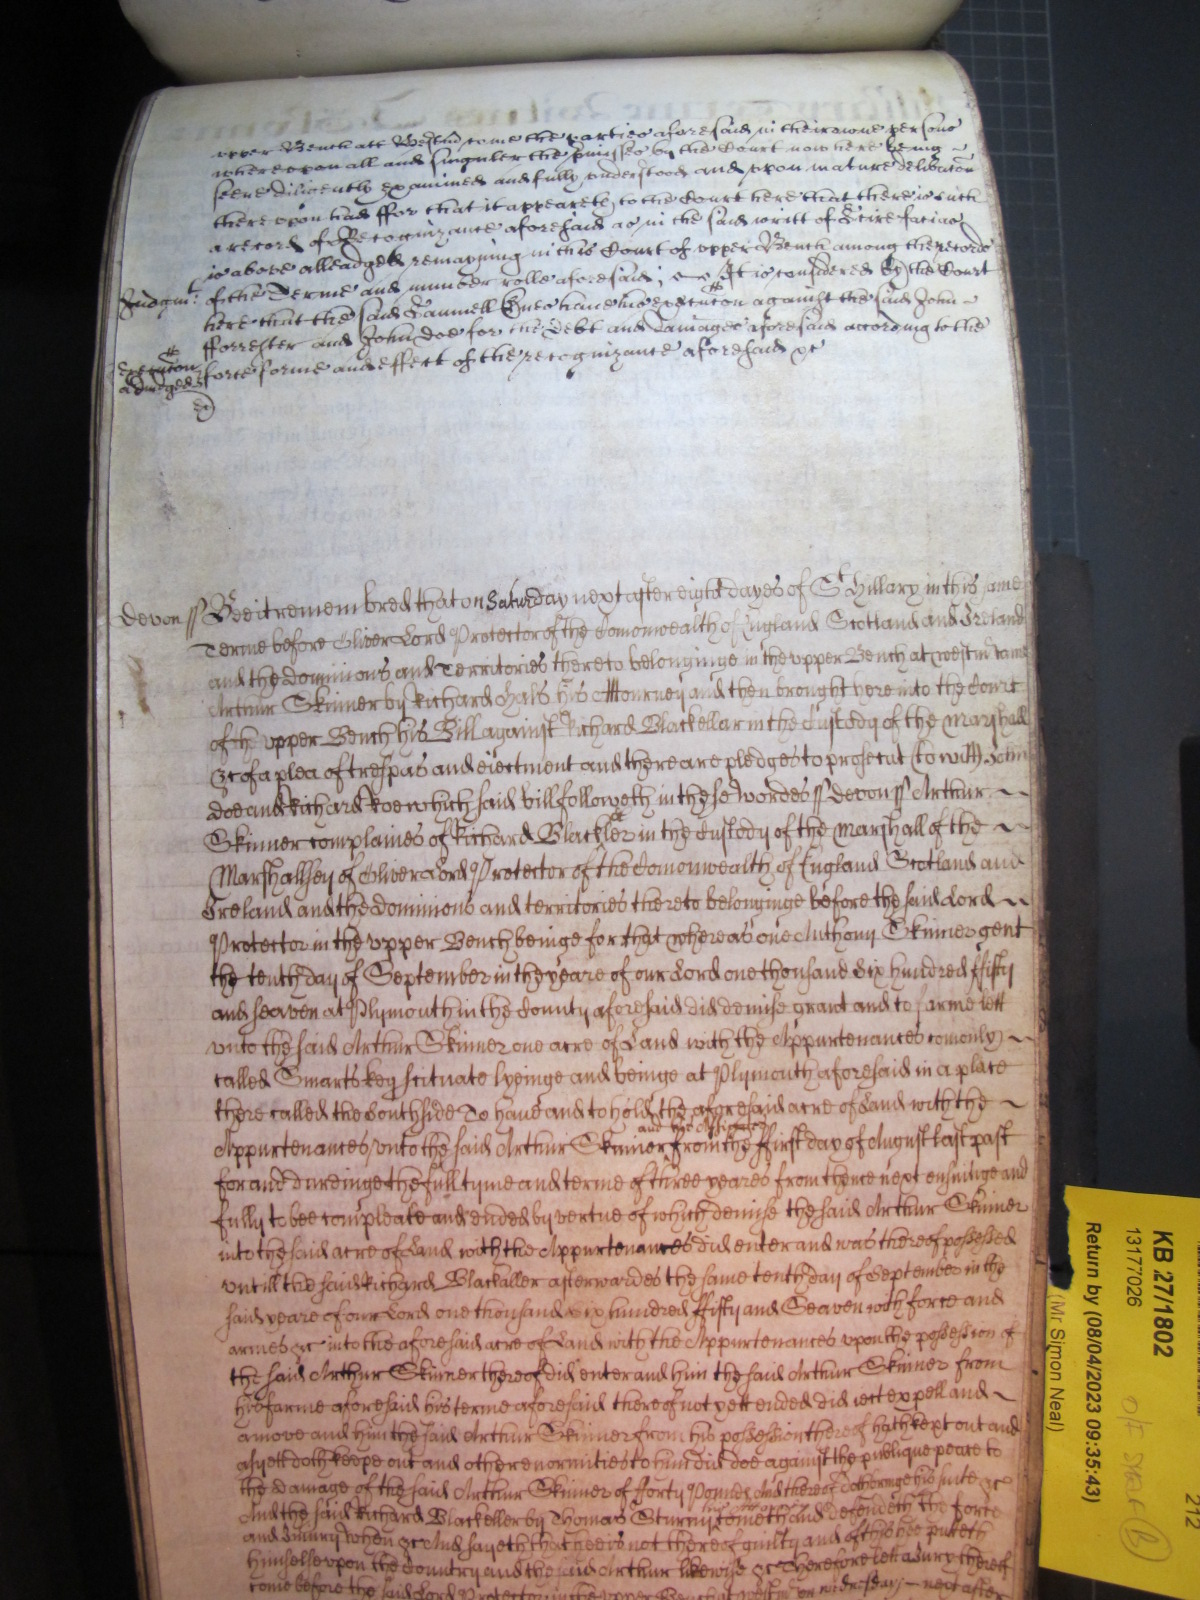 upper Bench att Westm come the parties aforesaid in their owne persons
whereupon all and singuler the pmisses by the Court now here being
seene diligently examined and fully understood and upon mature deliberacon
there upon had ffor that it appeareth to the Court here that there is such
a record of Recognizance aforesaid as in the said writt of Scire facias
is above alleadged remayning in this Court of upper Bench among the records
of the Terme and number rolle aforesaid; It is considered by the Court
Judgmt
here that the said Samuell have his execucon against the said John
fforrester and John Doe for the debt and damages aforesaid according to the
execucon
adiudged
force forme and effect of the recognizance aforesaid &c
Devon ss Bee it remembred that on Saturday next after eight dayes of St Hillary in this same
Terme before Oliver Lord Protector of the Comonwealth of England Scotland and Ireland
and the dominions and Territories thereto belonginge in the upper Bench at westm came
Arthur Skinner by Richard Hals his Attorney and then brought here into the Court
of the upper Bench his Bill against Richard Blackellar in the Custody of the Marshall
&c of a plea of trespas and eiectment and there are pledges to prosecut (to witt) John
doe and Richard Roe which said bill followeth in these wordes ss Devon ss Arthur
Skinner complaines of Richard Blackler in the Custody of the Marshall of the
Marshallsey of Oliver Lord Protector of the Comonwealth of England Scotland and
Ireland and the dominions and territories thereto belonginge before the said Lord
Protector in the upper Bench beinge for that whereas one Anthony Skinner gent
the tenth day of September in the yeare of our Lord one thousand six hundred ffifty
and seaven at Plymouth in the County aforesaid did demise grant and to farme lett
unto the said Arthur Skinner one acre of Land with the Appurtenances comonly
called Smarts key scituate lyeinge and beinge at Plymouth aforesaid in a place
there called the Southside To have and to hold the aforesaid acre of Land with the
and his Assignes
Appurtenances unto the said Arthur Skinner from the ffirst day of August last past
for and dureinge the full tyme and terme of three yeares from thence next ensuinge and
fully to bee compleate and ended by vertue of which demise the said Arthur Skinner
into the said acre of Land with the Appurtenances did enter and was thereof possessed
untill the said Richard Blackaller afterwardes the same tenth day of September in the
said yeare of our Lord one thousand six hundred ffifty and Seaven with force and
armes &c into the aforesaid acre of Land with the Appurtenances upon the possession of
the said Arthur Skinner thereof did enter and him the said Arthur Skinner from
his farme aforesaid his terme aforesaid thereof not yett ended did iect expell and
amove and him the said Arthur Skinner from his possession thereof hath kept out and
as yett doth keepe out and other enormities to him did doe against the publique peace to
the damage of the said Arthur Skinner of fforty Pounds And thereof bringe his suite &c
And the said Richard Blackeller by Thomas Sturmy his Attorney cometh and defendeth the force
and Iniury when &c And sayeth that hee is not thereof guilty and of this hee puteth
himselfe upon the Country and the said Arthur likewise &c Therefore lett a Jury thereof
come before the said Lord Protector in the upper Bench at westm on wednesday next after
KB 27/1802
13177026
Return by (08/04/2023 09:35:43)
(Mr Simon Neal)
212